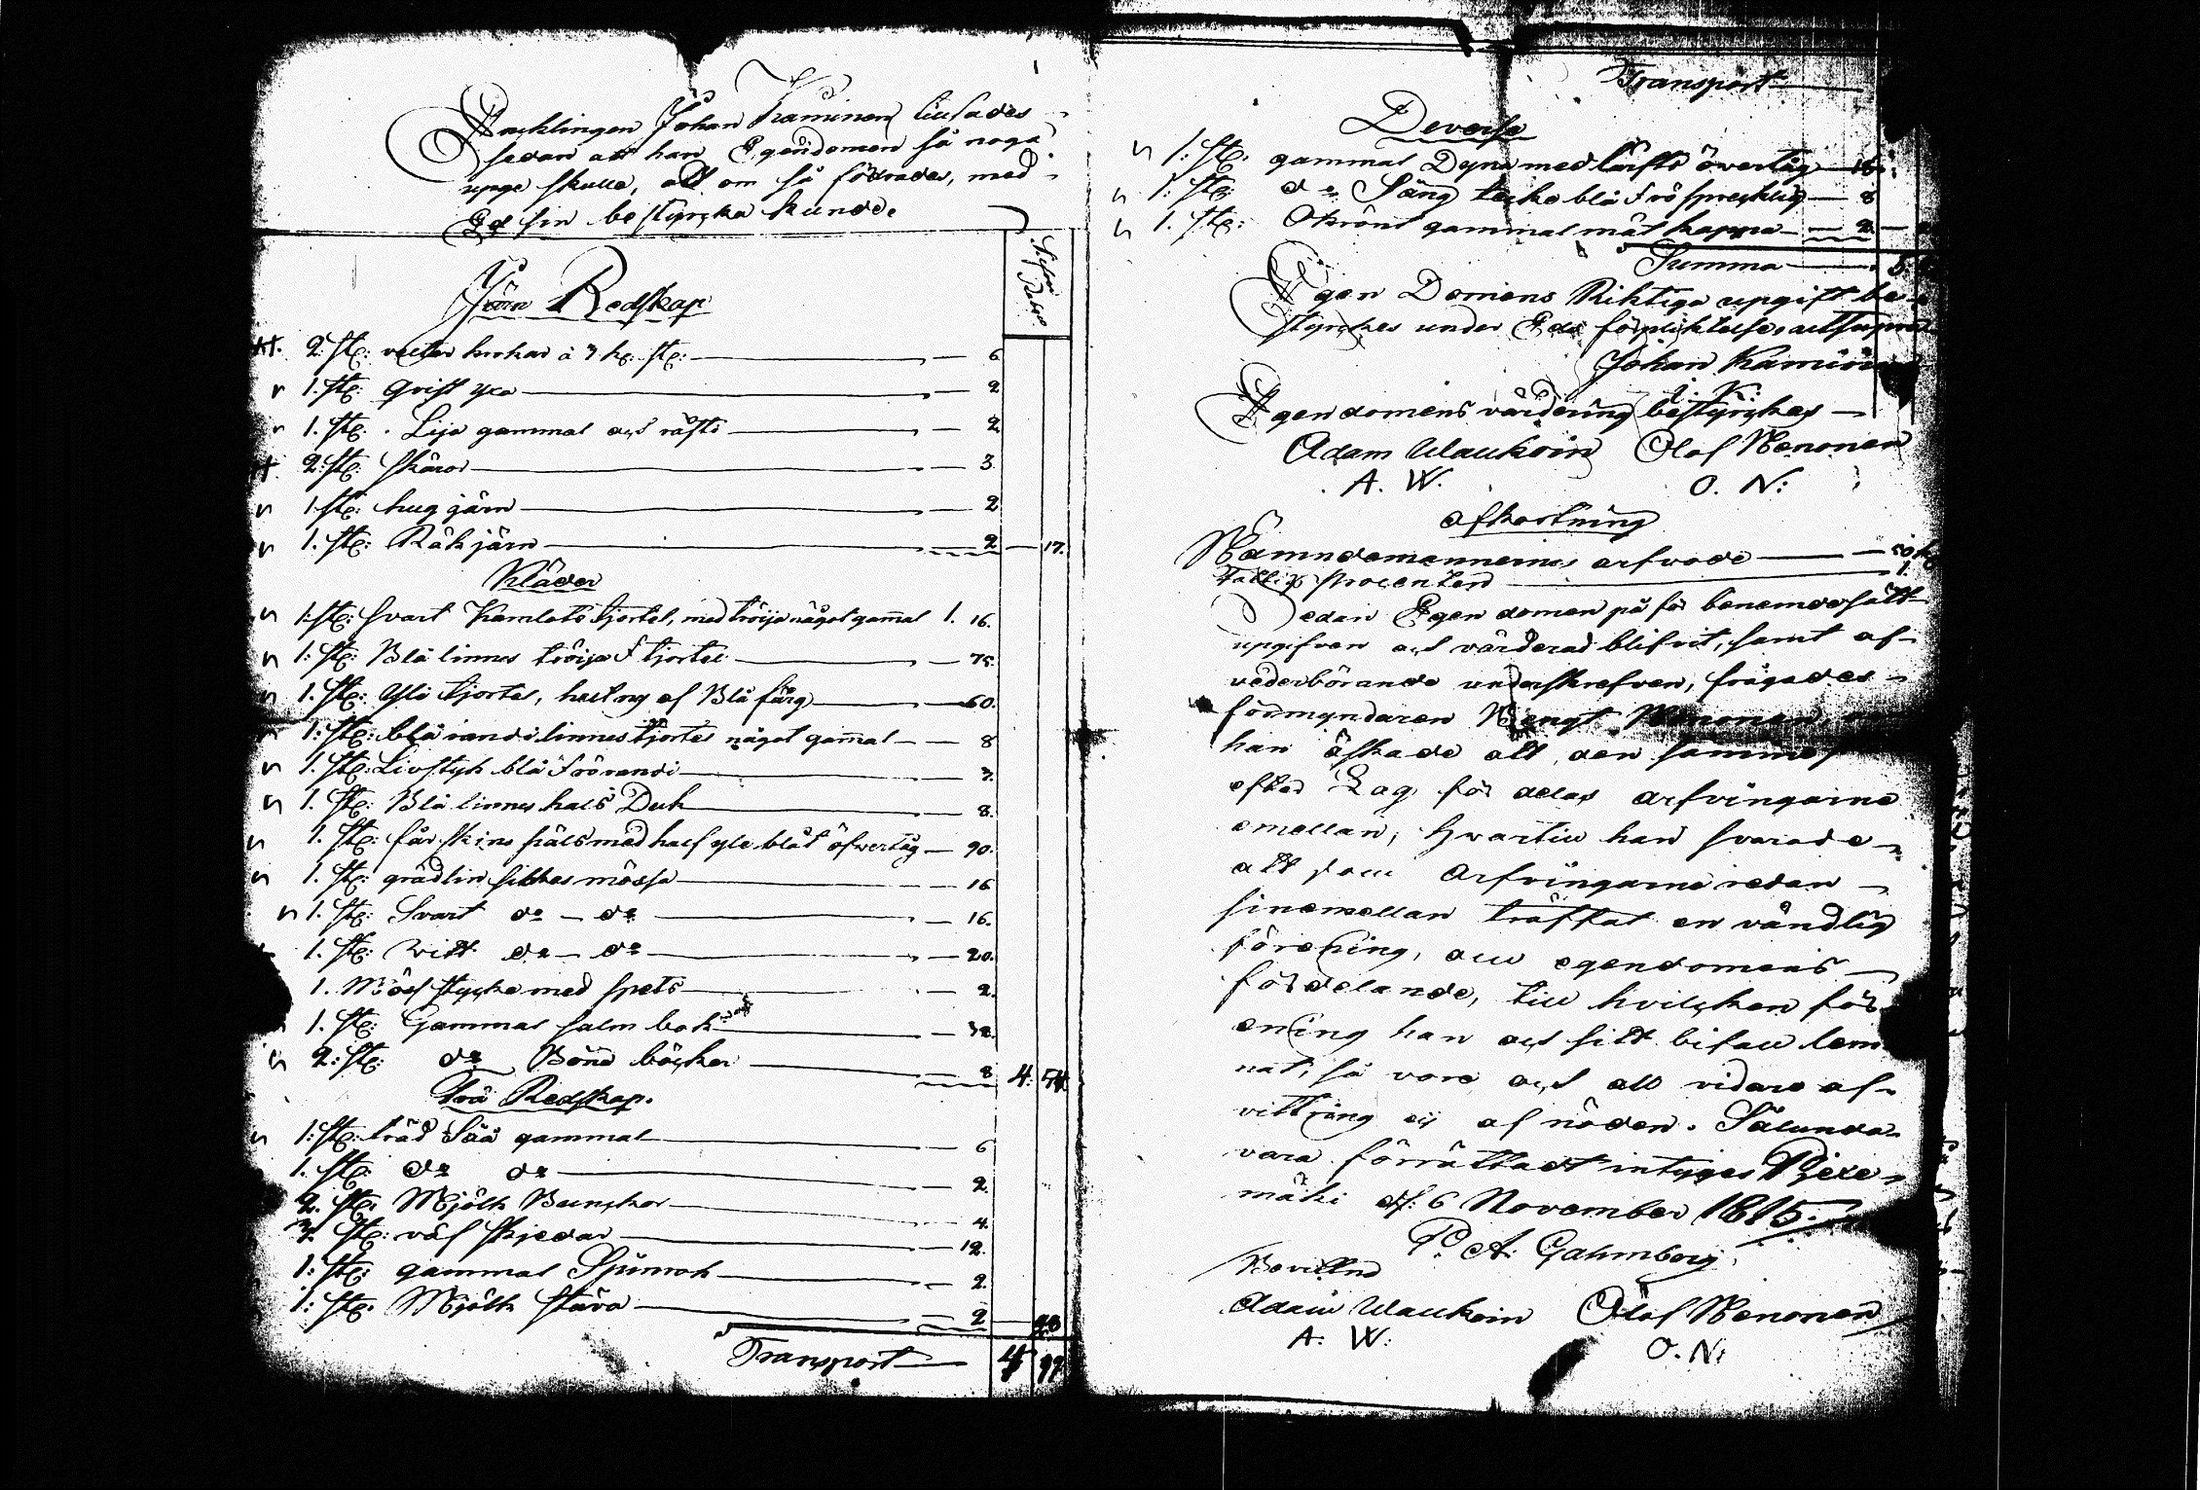 Enklingen Johan Kaminen tilsades
sedan att han Egendomen så noga
upge skulle, att om så födrades, med
Ed sin bestyrcka kunde.
Silfver Rub.
Järn Redskap
2: st: reeter krokar à 3 k: st: 6
1. st: Qvist yxa 2
1. st: Lija gammal och räfst 2
2: st: Skäror 3.
1 st: hugg järn 2
1. st: Råk järn 2 17.
Kläder
1: st: svart Kamlots kjortel, med tröija något gamal 1. 16.
1: st: Blå linnes tröija & kjortel 75.
1. st: Ylle kjortel, half ny af Blå färg 60.
1: st: blå randi linnes kjortel något gamal 8
1. st: Livstyk blå & rö randi 3.
1. st: Blå linnes hals Duk 8.
1. st: får skins päls med half yle blåt öfvertåg 90.
1. st: grädlin silkes mössa 16
1. st: Svart do do 16.
1. st: witt do do 20.
1. Möss stycke med spets 2.
1. st: Gammal salm bok 32.
2: st: do Böne böcker 8 4. 54
Trä Redskap.
1: st: träd Såå gammal 6
1. st: do do 2.
2. st: Mjölk Bunckar 4.
3. st: väf skjedar 12.
1: st: gammal Spinrok 2.
1: st: Mjölk stäva 2 28
Transport 4 99
Transport
Deverse
1: st: gammal Dyna med lärfts öwertåg 16.
1: st: do Säng täcke blå & rö spreckligt 8
1. st: Okrönt gammal måt kappa 2
Summa 5.
Egen Domens Riktiga upgift be-
styrckes under Eds förpliktelse, utsupra
Johan Kaminen
I. K:
Egendomens värdering bestyrckes
Adam Uauhkoin Olof Nenonen
A. W. O. N:
afkortning
Nämndemännernes arfvode 20 k
Fattig procenten 1.
Sedan Egendomen på för benemde sätt
upgifven och värderad blifvit, samt af
vederbörande underskrefven, frågades
förmyndaren Bengt Nenonen, om
han åskade att den sammes
efter Lag för delas arfvingarne
emellan, hwartill han svarade
att som Arfvingarne redan
sinemellan träffat en vändlig
förening, om egendomens
fördelande, till hvilcken för-
ening han och sitt bifall lem-
nat, så vore och all vidare af-
vittring eij af nöden. Sålunda
vara förrättadt intyges
mäki d: 6 November 1815.
P. A: Gahmberg
Bevittna
Adam Uauhkoin Olof Nenonen
A. W: O. N: